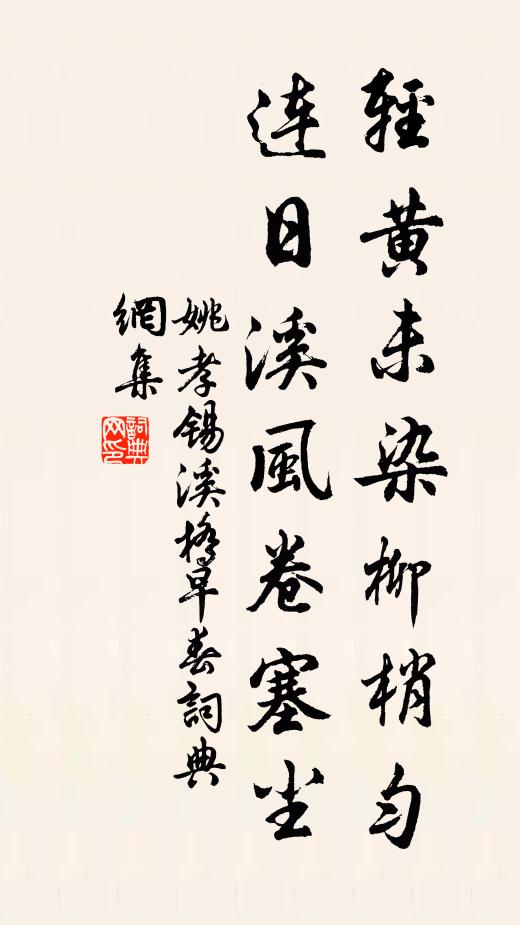 輕黃未染柳梢勻
連日溪風卷塞尘
姚孝錫溪橋早春詞典
網集
詞典
网印